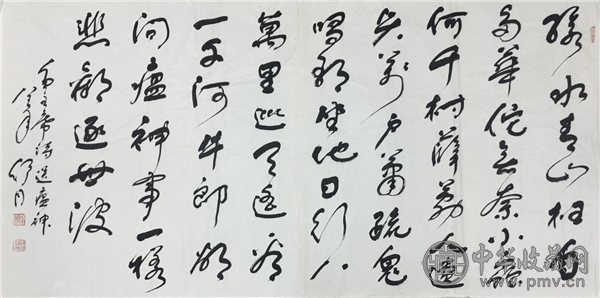 綠水青山枉自
多華佗無奈小蟲
何千村薜荔人遗
矢萬户蕭疏鬼
唱歌坐地日行八
萬里巡天遥看
一千河牛郎欲
问瘟神事一樣
悲歡逐逝波
毛主席诗送瘟神
中华收藏网
www.pmv.cn